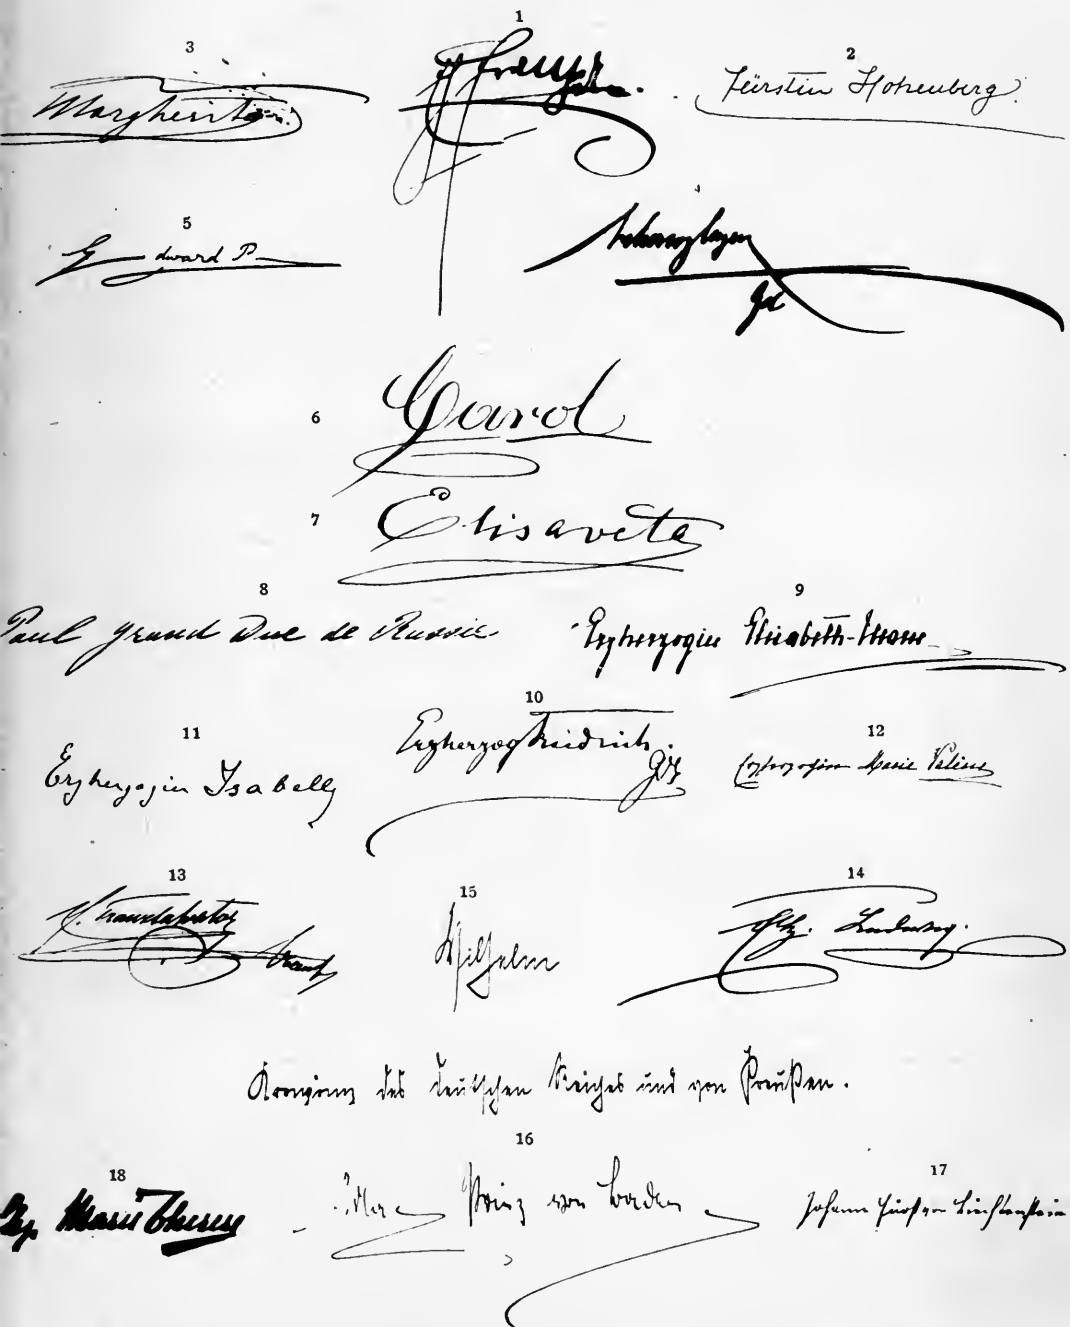 1
3
2
Margherita
Fürstin Hohenberg.
4
5
Edward P
6
Carol
7
Elisaveta
8
9
Paul Grand Duc de Russie
Erzherzogin Elisabeth-Marie
10
11
12
Erzherzog Friedrich.
Erzherzogin Isabella
Erzherzogin Marie Valerie
13
14
15
Wilhelm
Erzh. Ludwig.
Kronprinz des deutschen Reiches und von Preußen.
16
18
17
Prinz von Baden
Johann Fürst von Liechtenstein
Marie Therese